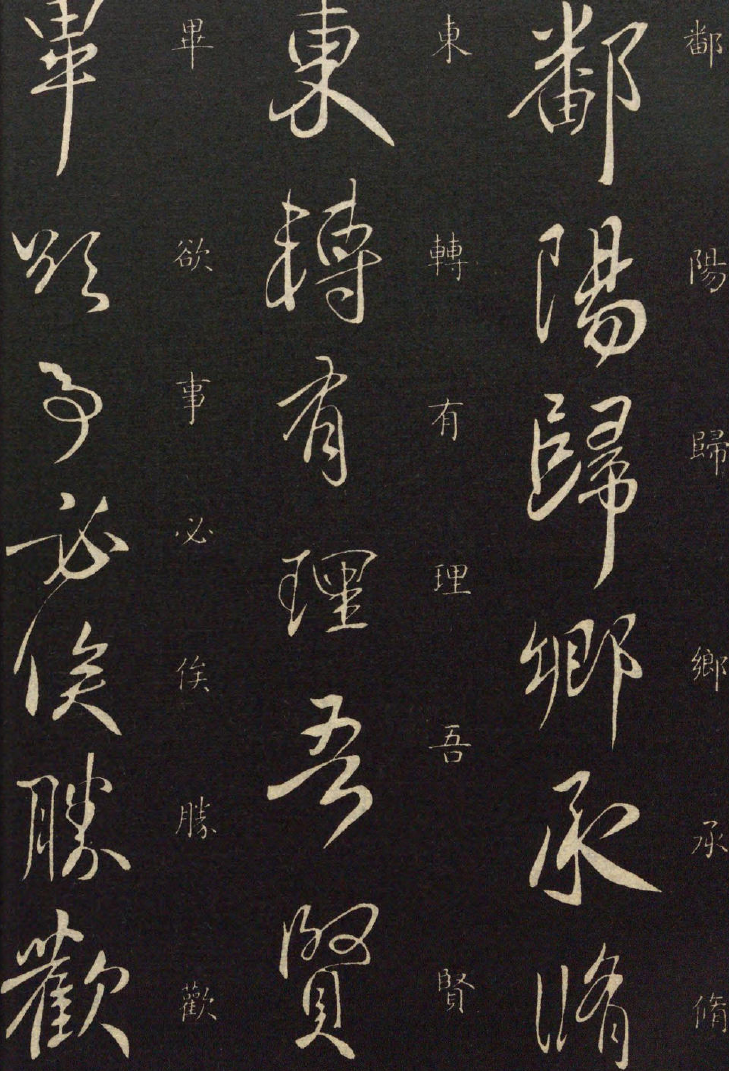 鄱陽歸鄉承脩
鄱陽歸鄉承脩
東轉有理吾賢
東轉有理吾賢
畢欲事必俟勝歡
畢欲事必俟勝歡